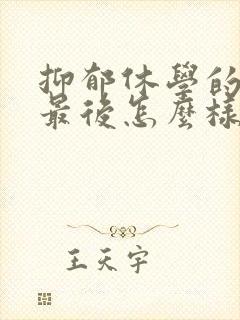 抑郁休學的
最後怎麼樣
王天宇